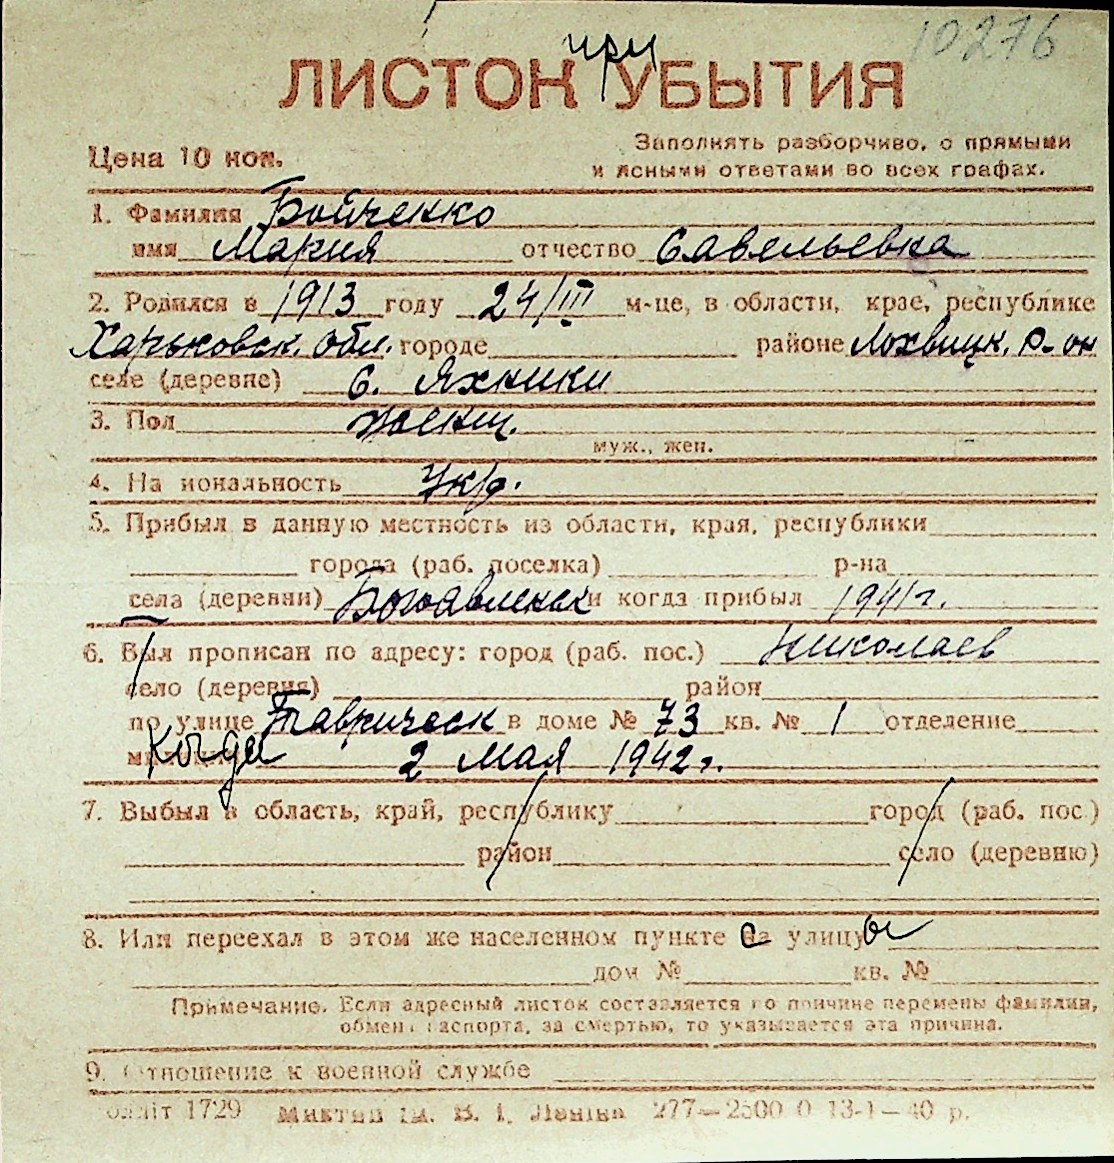 10276
ЛИСТОК при УБЫТИЯ
Цена 10 коп.
Заполнять разборчиво, с прямыми
и ясными ответами во всех графах.
1. Фамилия Бойченко
имя Мария отчество Савельевна
2. Родился в 1913 году 24/III м-це, в области, крае, республике
Харьковск. обл. городе районе Лохвицк. р-он
селе (деревне) с. Яхники
3. Пол женщ.
муж., жен.
4. На иональность Укр.
5. Прибыл в данную местность из области, края, республики
города (раб. поселка) р-на
села (деревни) Богоявленск и когда прибыл 1941 г.
6. Был прописан по адресу: город (раб. пос.) Николаев
село (деревня) район
по улице Таврическ в доме № 73 кв. № 1 отделение
когда 2 мая 1942 г.
7. Выбыл в область, край, республику город (раб. пос.)
район село (деревню)
8. Или переехал в этом же населенном пункте с улицы
дом № кв. №
Примечание. Если адресный листок составляется по причине перемены фамилии,
обмена паспорта, за смертью, то указывается эта причина.
9. Отношение к военной службе
олліт 1729 Миктип ім. В. І. Леніна 277—2500 0 13-1—40 р.